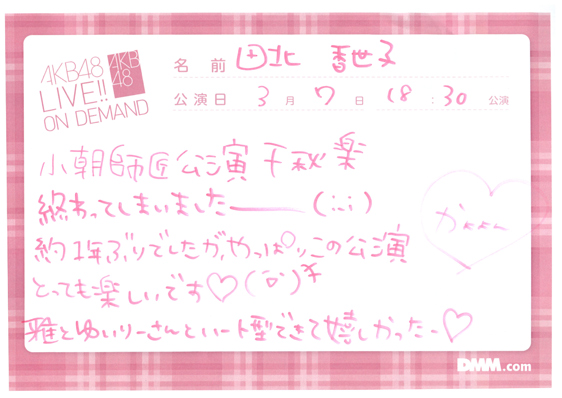 AKB48
LIVE!!
ON DEMAND
AKB
48
名 前 田北 香世子
公演日 3 月 7 日 18 : 30 公演
小朝師匠公演 千秋楽
終わってしまいましたーーー(;_;)
約1年ぶりでしたが、やっぱりこの公演
とっても楽しいです♡(^o^)*
雅とゆいりーさんとハート型できて嬉しかったー♡
かよよん
DMM.com